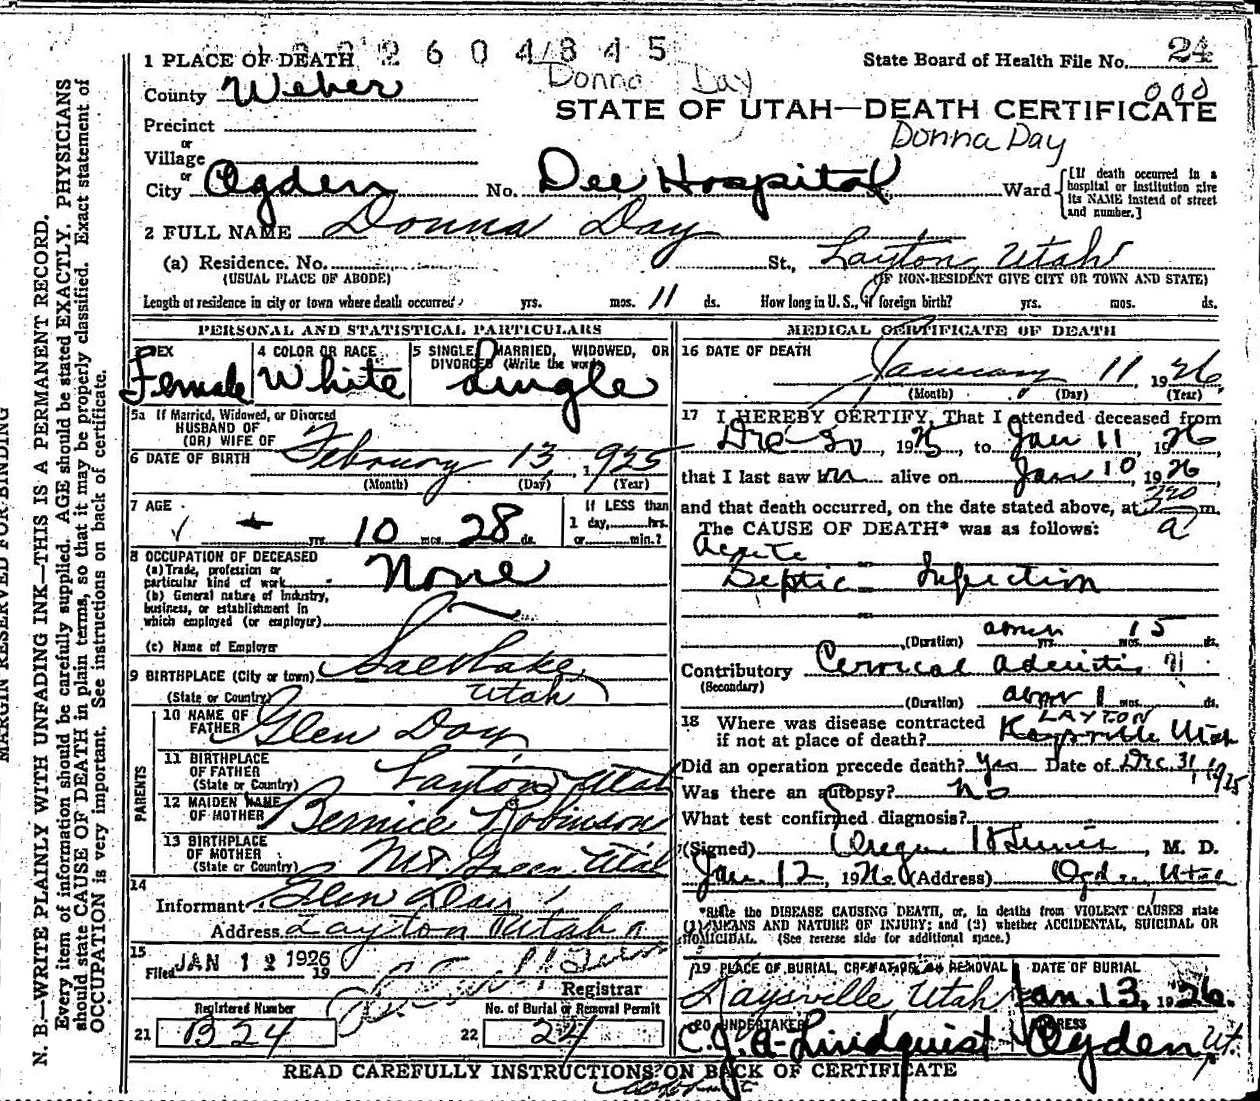 2604845
Donna Day
State Board of Health File No. 24
000
1 PLACE OF DEATH
County Weber
STATE OF UTAH—DEATH CERTIFICATE
Donna Day
Precinct
or
Village
or
City Ogden No. Dee Hospital Ward
[If death occurred in a hospital or institution give its NAME instead of street and number.]
2 FULL NAME Donna Day
(a) Residence. No. St., Layton, Utah
(USUAL PLACE OF ABODE) (IF NON-RESIDENT GIVE CITY OR TOWN AND STATE)
Length of residence in city or town where death occurred yrs. mos. 11 ds. How long in U. S., if foreign birth? yrs. mos. ds.
PERSONAL AND STATISTICAL PARTICULARS
SEX
Female
4 COLOR OR RACE
White
5 SINGLE, MARRIED, WIDOWED, OR DIVORCED (Write the word)
Single
5a If Married, Widowed, or Divorced
HUSBAND OF
(OR) WIFE OF
6 DATE OF BIRTH February 13, 1925
(Month) (Day) (Year)
7 AGE
yrs. 10 mos. 28 ds.
If LESS than
1 day, hrs.
or min.?
8 OCCUPATION OF DECEASED
(a) Trade, profession or
particular kind of work None
(b) General nature of Industry,
business, or establishment in
which employed (or employer)
(c) Name of Employer
9 BIRTHPLACE (City or town) Salt Lake,
(State or Country) Utah
PARENTS
10 NAME OF
FATHER Glen Day
11 BIRTHPLACE
OF FATHER
(State or Country) Layton Utah
12 MAIDEN NAME
OF MOTHER Bernice Robinson
13 BIRTHPLACE
OF MOTHER
(State or Country) Mt Green Utah
14
Informant Glen Day
Address Layton Utah
15
Filed JAN 12 1926 19
Registrar
Registered Number
21 B24
No. of Burial or Removal Permit
22 24
MEDICAL CERTIFICATE OF DEATH
16 DATE OF DEATH
January 11, 1926
(Month) (Day) (Year)
17 I HEREBY CERTIFY, That I attended deceased from
Dec 30, 1925, to Jan 11 1926
that I last saw alive on Jan 10, 1926,
and that death occurred, on the date stated above, at 220 a m.
The CAUSE OF DEATH* was as follows:
Acute
Septic Infection
(Duration) yrs. mos. 15 ds.
Contributory Cervical adenitis
(Secondary)
(Duration) 1 mos. ds.
18 Where was disease contracted LAYTON
if not at place of death? Kaysville Utah
Did an operation precede death? yes Date of Dec 31, 1925
Was there an autopsy? no
What test confirmed diagnosis?
(Signed) M. D.
Jan. 12, 1926 (Address) Ogden, Utah
*State the DISEASE CAUSING DEATH, or, in deaths from VIOLENT CAUSES state
(1) MEANS AND NATURE OF INJURY; and (2) whether ACCIDENTAL, SUICIDAL OR
HOMICIDAL. (See reverse side for additional space.)
19 PLACE OF BURIAL, CREMATION, OR REMOVAL
Kaysville, Utah
DATE OF BURIAL
Jan. 13, 1926.
20 UNDERTAKER
C. J. A. Lindquist
ADDRESS
Ogden, Ut.
READ CAREFULLY INSTRUCTIONS ON BACK OF CERTIFICATE
MARGIN RESERVED FOR BINDING
N. B.—WRITE PLAINLY WITH UNFADING INK—THIS IS A PERMANENT RECORD.
Every item of information should be carefully supplied. AGE should be stated EXACTLY. PHYSICIANS
should state CAUSE OF DEATH in plain terms, so that it may be properly classified. Exact statement of
OCCUPATION is very important. See instructions on back of certificate.